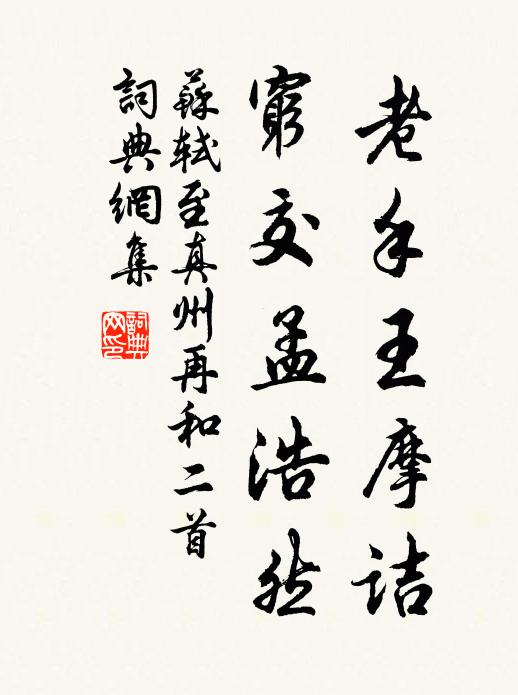 老手王摩詰
窮交孟浩然
蘇軾至真州再和二首
詞典網集
詞典網印